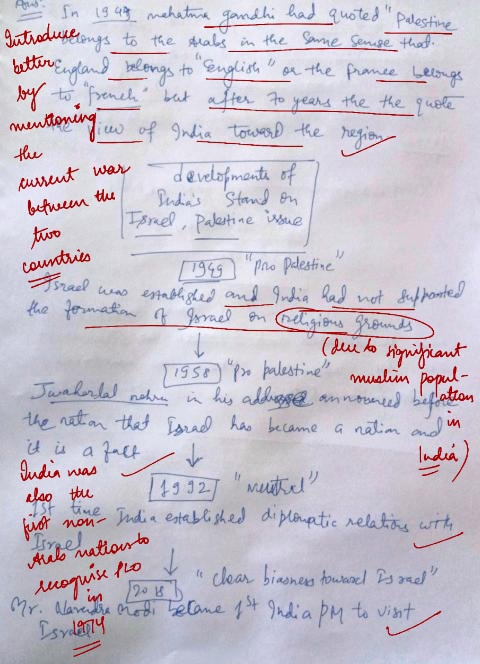 Ans:- In 1949 mahatma gandhi had quoted "Palestine
belongs to the Arabs in the same sense that
England belongs to "English" or the France belongs
to "french" but after 70 years the the quote
view of India toward the region
Introduce
better
by
mentioning
the
current war
between the
two
countries
developments of
India's Stand on
Israel, Palestine issue
1949 "pro palestine"
Israel was established and India had not supported
the formation of Israel on religious grounds
(due to significant
muslim popul-
ation
in
India)
1958 "pro palestine"
Jwaharlal nehru in his address announced before
the nation that Israel has became a nation and
it is a fact
India was
also the
first non-
Arab nations to
recognise PLO
in
1974
1992 "neutral"
1st time India established diplomatic relations with
Israel
2018 "clear biasness toward Israel"
Mr. Narendra modi became 1st India PM to visit
Israel